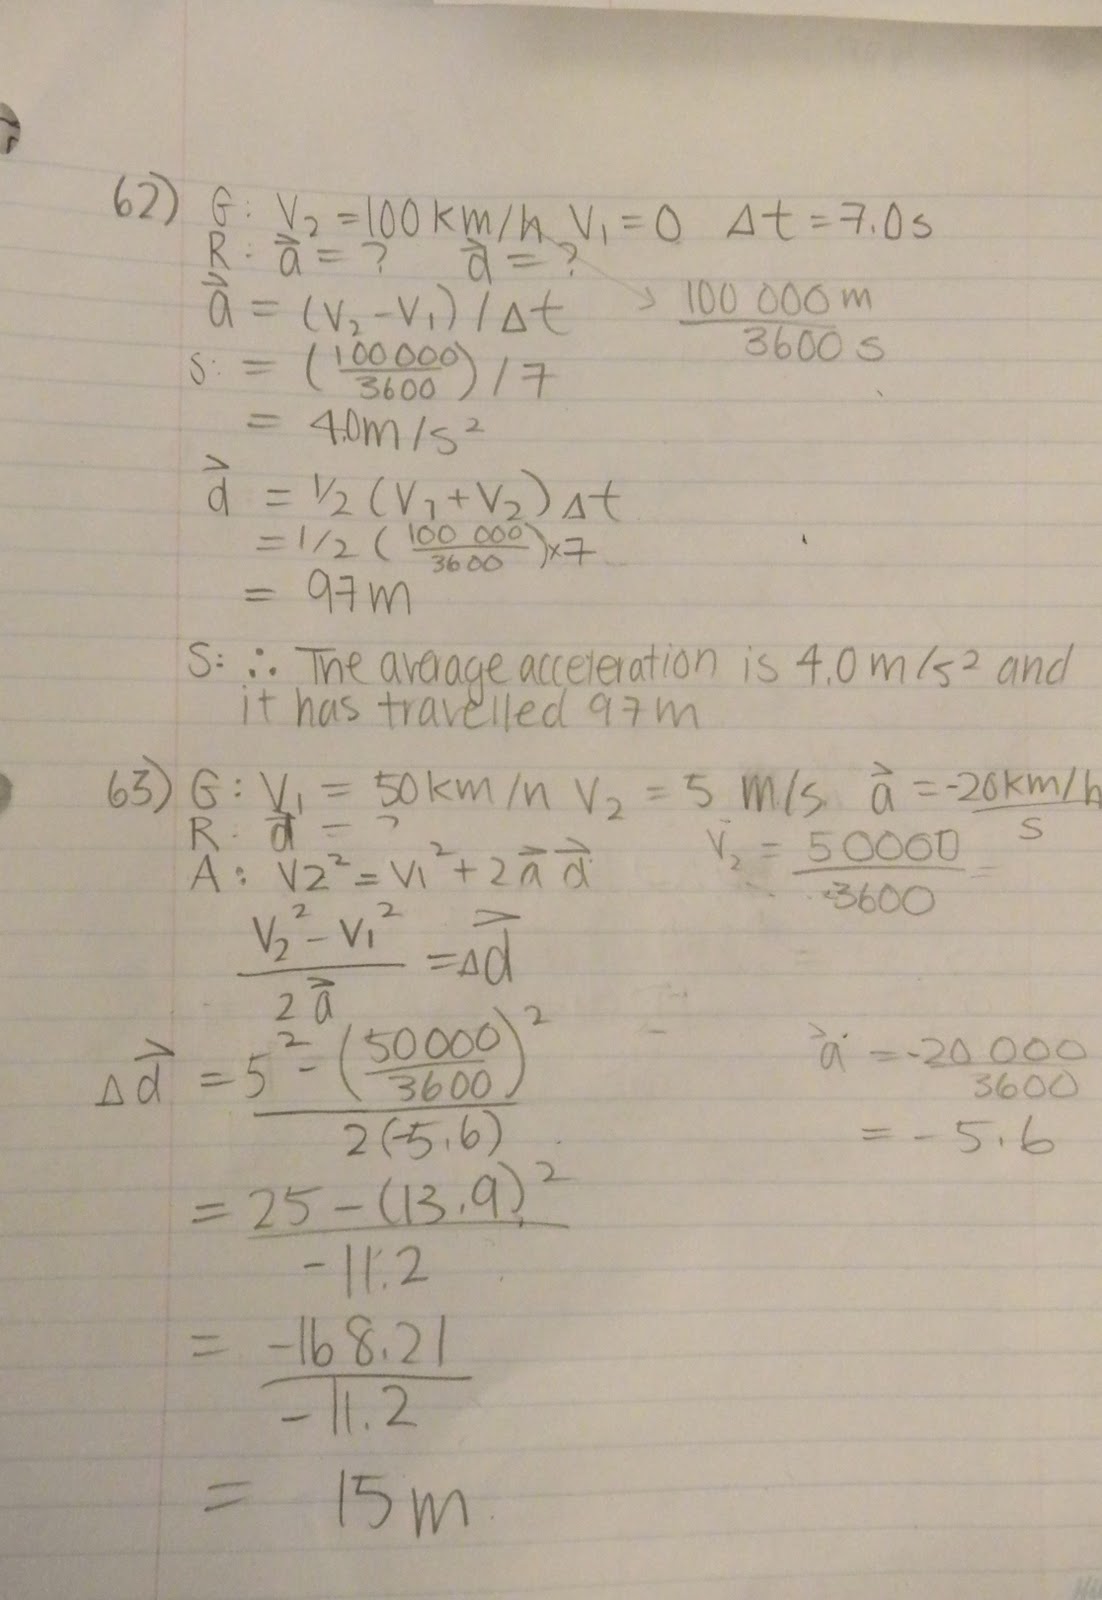 62) G: V₂ = 100 km/h V₁ = 0 Δt = 7.0s
R: a⃗ = ? d⃗ = ?
a⃗ = (V₂ - V₁) / Δt → 100 000 m / 3600 s
S: = (100 000 / 3600) / 7
= 4.0m/s²
d⃗ = 1/2 (V₁ + V₂) Δt
= 1/2 (100 000 / 3600) x 7
= 97m
S: ∴ The average acceleration is 4.0 m/s² and
it has travelled 97m
63) G: V₁ = 50 km/h V₂ = 5 m/s a⃗ = -20km/h / s
R. d⃗ = ? V₂ = 50000 / 3600 =
A: V2² = V₁² + 2 a⃗ d⃗
V₂² - V₁² / 2 a⃗ = Δd⃗
Δd⃗ = 5² - (50000 / 3600)² / 2(-5.6) a⃗ = -20 000 / 3600
= -5.6
= 25 - (13.9)² / -11.2
= -168.21 / -11.2
= 15 m